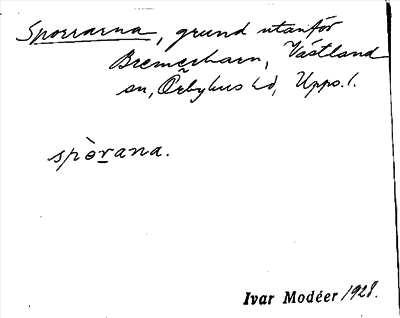 Sporrarna, grund utanför
Bremerharn, Västland
sn, Örbyhus hd, Upps. l.
spòrana.
Ivar Modéer 1928.